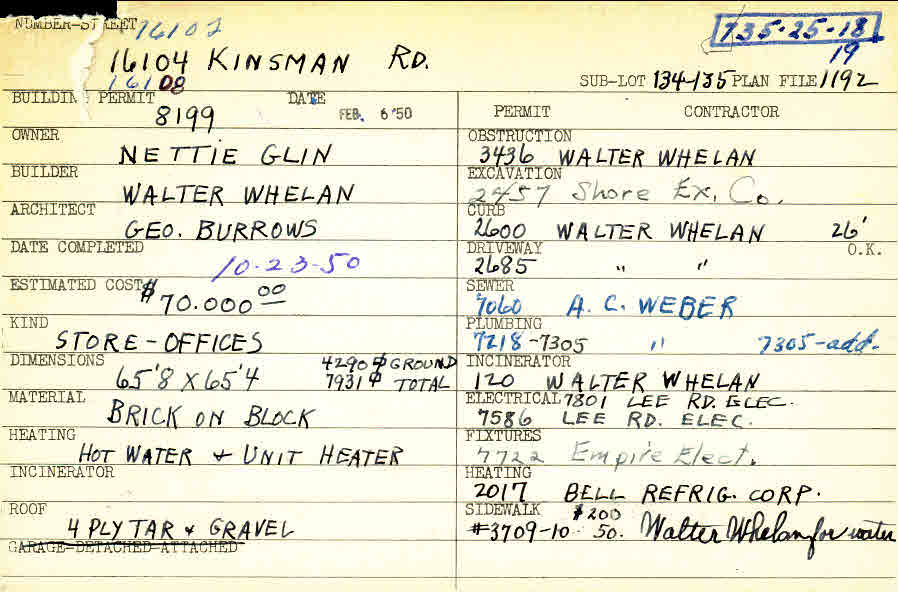 NUMBER-STREET 16102
16104 KINSMAN RD.
16108
735-25-18
19
SUB-LOT 134-135 PLAN FILE 1192
BUILDING PERMIT DATE
8199 FEB. 6 '50
OWNER
NETTIE GLIN
BUILDER
WALTER WHELAN
ARCHITECT
GEO. BURROWS
DATE COMPLETED
10-23-50
ESTIMATED COST $70.000 00
KIND
STORE-OFFICES
DIMENSIONS 4290 ⌀ GROUND
65'8 X 65'4 7931 ⌀ TOTAL
MATERIAL
BRICK ON BLOCK
HEATING
HOT WATER + UNIT HEATER
INCINERATOR
ROOF
4 PLY TAR + GRAVEL
GARAGE-DETACHED-ATTACHED
PERMIT CONTRACTOR
OBSTRUCTION
3436 WALTER WHELAN
EXCAVATION
2457 Shore Ex. Co.
CURB
2600 WALTER WHELAN 26'
DRIVEWAY O.K.
2685 " "
SEWER
7060 A. C. WEBER
PLUMBING
7218-7305 " 7305-add.
INCINERATOR
120 WALTER WHELAN
ELECTRICAL 7801 LEE RD. ELEC.
7586 LEE RD. ELEC.
FIXTURES
7722 Empire Elect.
HEATING
2017 BELL REFRIG. CORP.
SIDEWALK $200
#3709-10 50. Walter Whelan for water